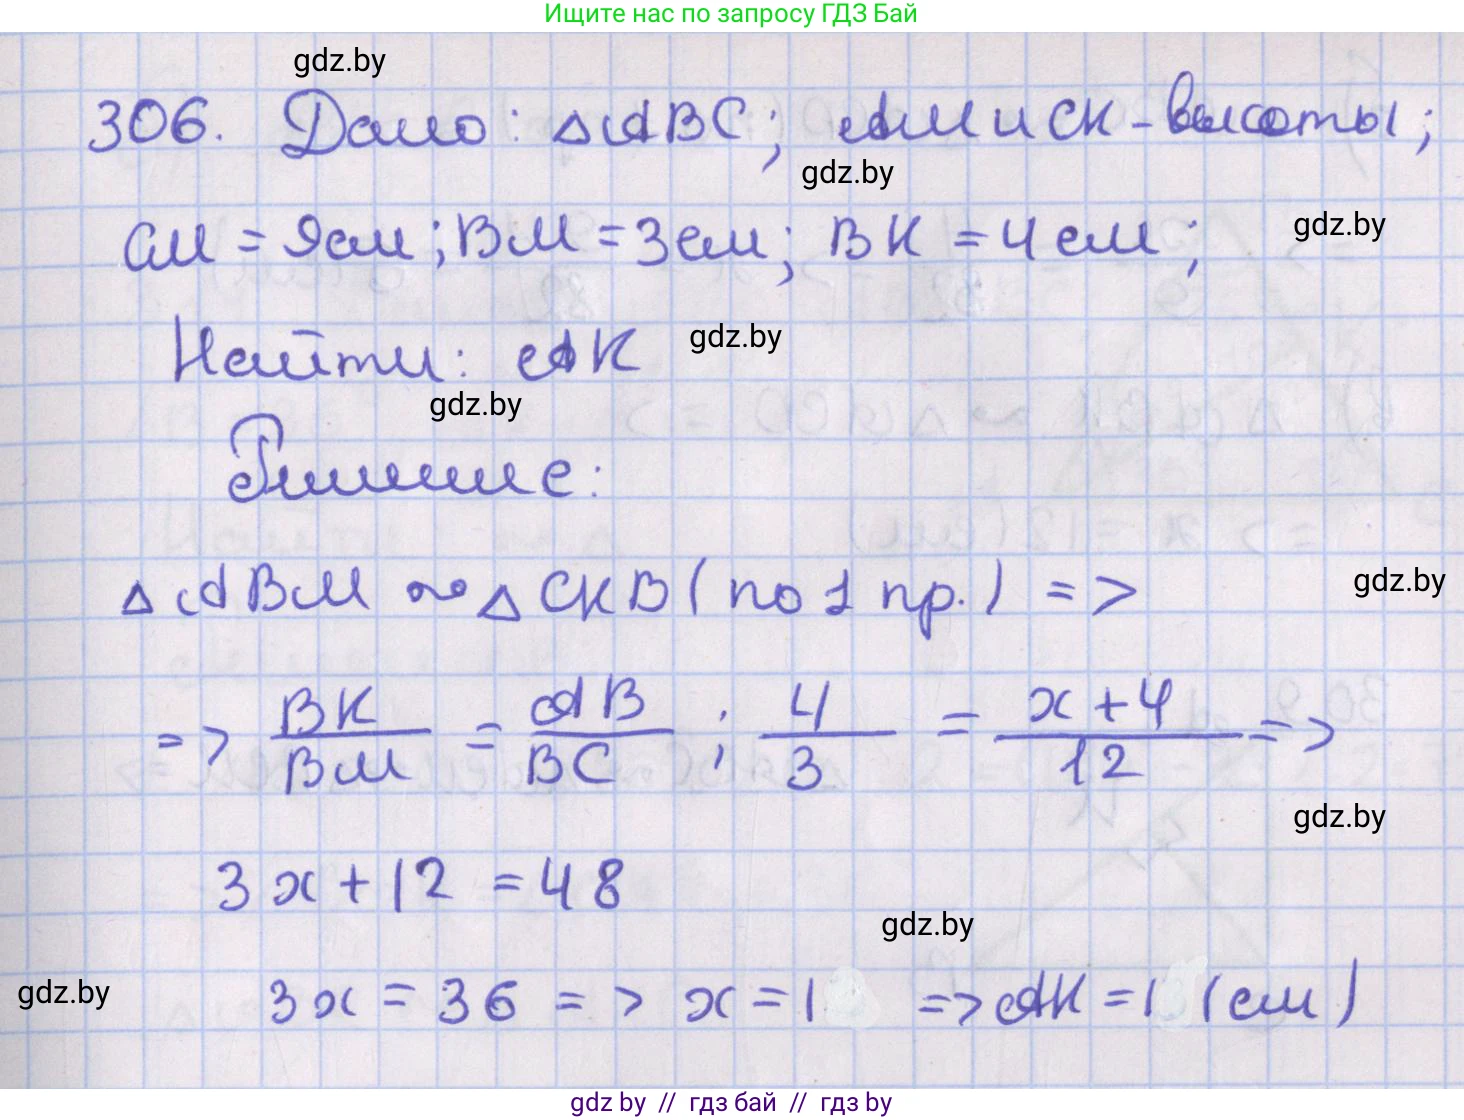 Ищите нас по запросу ГДЗ Бай
gdz.by
306. Дано: △ABC; AM и CK - высоты;
gdz.by
CM = 9см; BM = 3см; BK = 4см;
gdz.by
Найти: AK
gdz.by
gdz.by
Решение:
△ABM ~ △CKB (по 1 пр.) =>
gdz.by
=> BK/BM = AB/BC ; 4/3 = x+4/12 =>
gdz.by
3x+12 = 48
gdz.by
gdz.by
3x = 36 => x = 1 => AK = 1 (см)
gdz by // гдз бай // гдз by